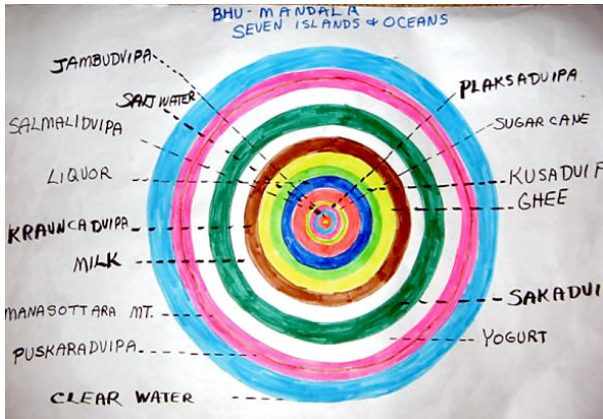 BHU-MANDALA
SEVEN ISLANDS & OCEANS
JAMBUDVIPA
SALT WATER
SALMALIDVIPA
LIQUOR
KRAUNCADVIPA
MILK
MANASOTTARA MT.
PUSKARADVIPA
CLEAR WATER
PLAKSADVIPA
SUGAR CANE
KUSADVIP
GHEE
SAKADVI
YOGURT